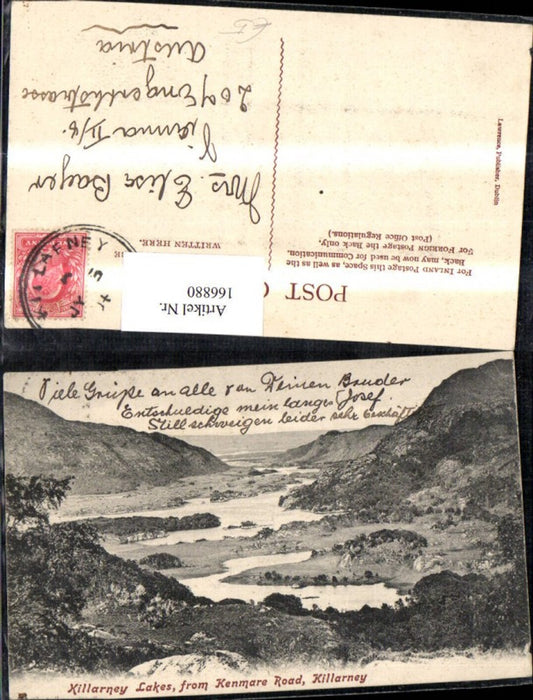 POST
For INLAND Postage this Space, as well as the
Back, may now be used for Communication.
For FOREIGN Postage the Back only.
(Post Office Regulations.)
WRITTEN HERE.
Artikel Nr.
166880
KILLARNEY
Mrs. Elise Bayer
Vienna II/8.
Austria
Lawrence, Publisher, Dublin
Viele Grüße an alle von Deinen Bruder
Entschuldige mein langes Josef
Stillschweigen leider sehr beschäft
Killarney Lakes, from Kenmare Road, Killarney